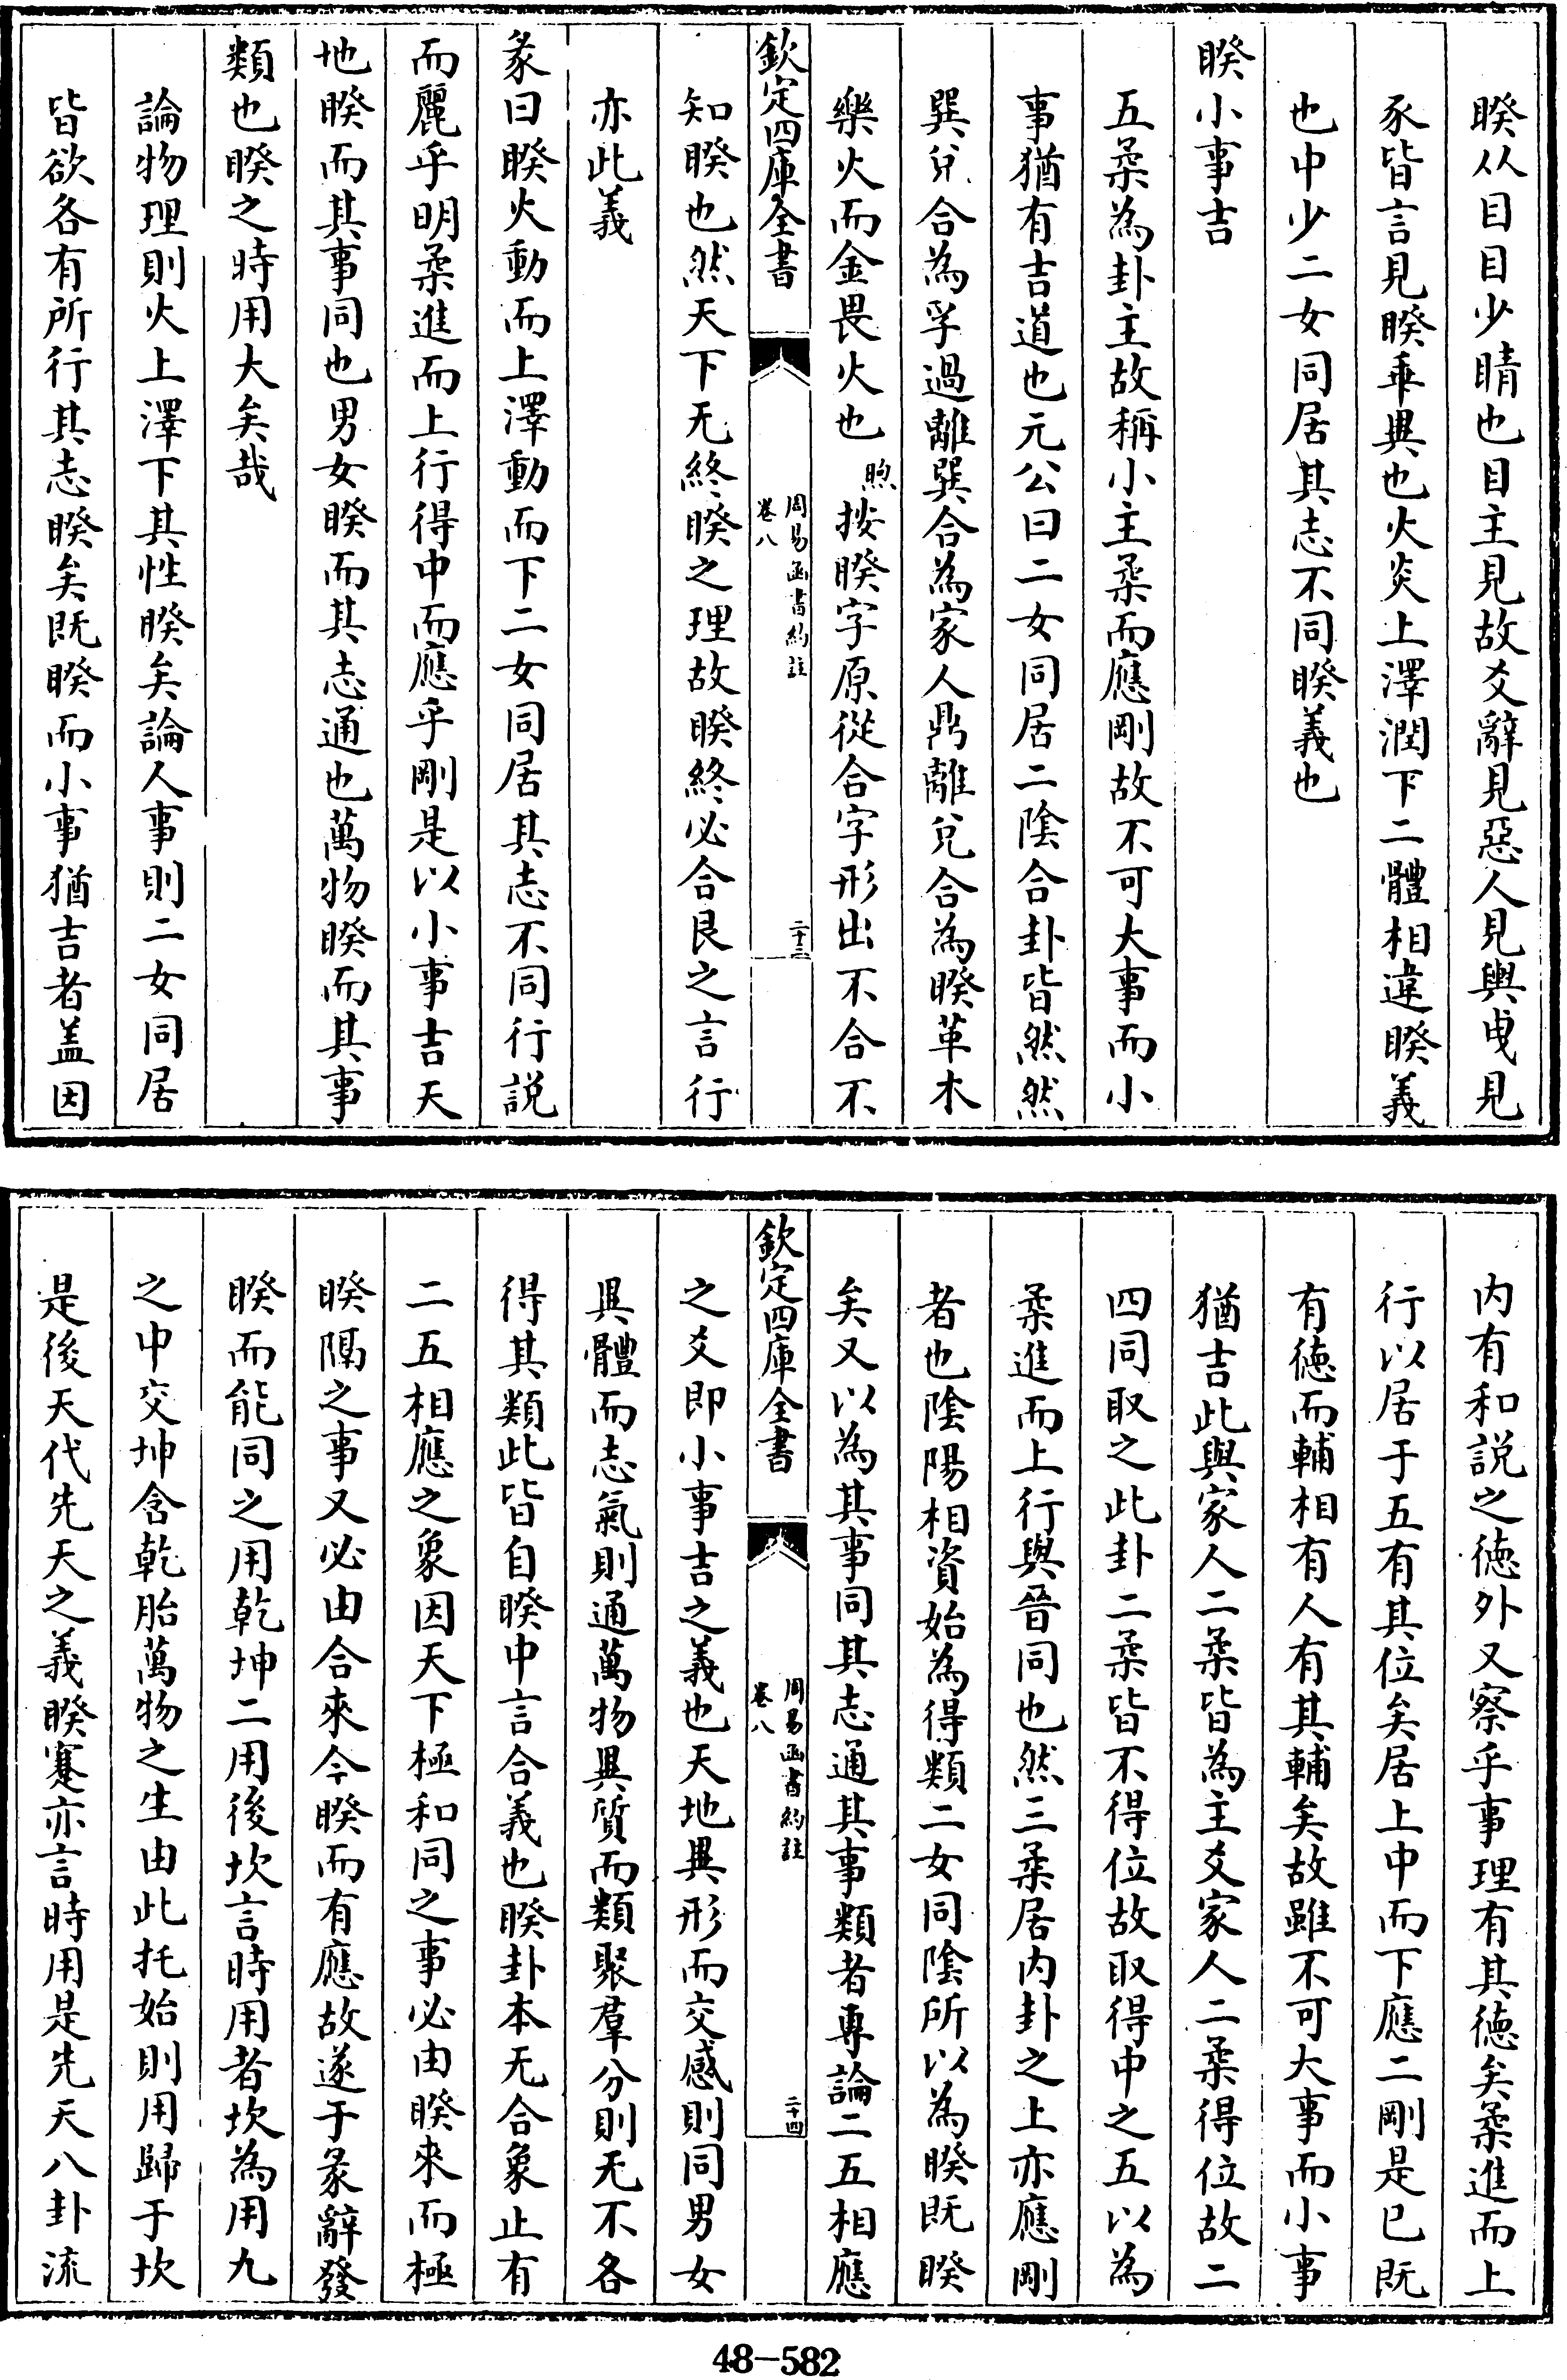 睽从目目少睛也目主見故爻辭見惡人見輿曵見
豕皆言見睽乖異也火炎上澤潤下二體相違睽義
也中少二女同居其志不同睽義也
睽小事吉
五柔為卦主故稱小主柔而應剛故不可大事而小
事猶有吉道也元公曰二女同居二陰合卦皆然然
巽兌合為孚過離巽合為家人鼎離兌合為睽革木
樂火而金畏火也煦按睽字原從合字形出不合不
欽定四庫全書
周易函書約註
卷八
二十三
知睽也然天下无終睽之理故睽終必合艮之言行
亦此義
彖曰睽火動而上澤動而下二女同居其志不同行説
而麗乎明柔進而上行得中而應乎剛是以小事吉天
地睽而其事同也男女睽而其志通也萬物睽而其事
類也睽之時用大矣哉
論物理則火上澤下其性睽矣論人事則二女同居
皆欲各有所行其志睽矣既睽而小事猶吉者盖因
内有和説之德外又察乎事理有其德矣柔進而上
行以居于五有其位矣居上中而下應二剛是已既
有德而輔相有人有其輔矣故雖不可大事而小事
猶吉此與家人二柔皆為主爻家人二柔得位故二
四同取之此卦二柔皆不得位故取得中之五以為
柔進而上行與晉同也然三柔居内卦之上亦應剛
者也陰陽相資始為得類二女同陰所以為睽既睽
矣又以為其事同其志通其事類者專論二五相應
欽定四庫全書
周易函書約註
卷八
二十四
之爻即小事吉之義也天地異形而交感則同男女
異體而志氣則通萬物異質而類聚羣分則无不各
得其類此皆自睽中言合義也睽卦本无合象止有
二五相應之象因天下極和同之事必由睽來而極
睽隔之事又必由合來今睽而有應故遂于彖辭發
睽而能同之用乾坤二用後坎言時用者坎為用九
之中交坤含乾胎萬物之生由此托始則用歸于坎
是後天代先天之義睽蹇亦言時用是先天八卦流
48-582